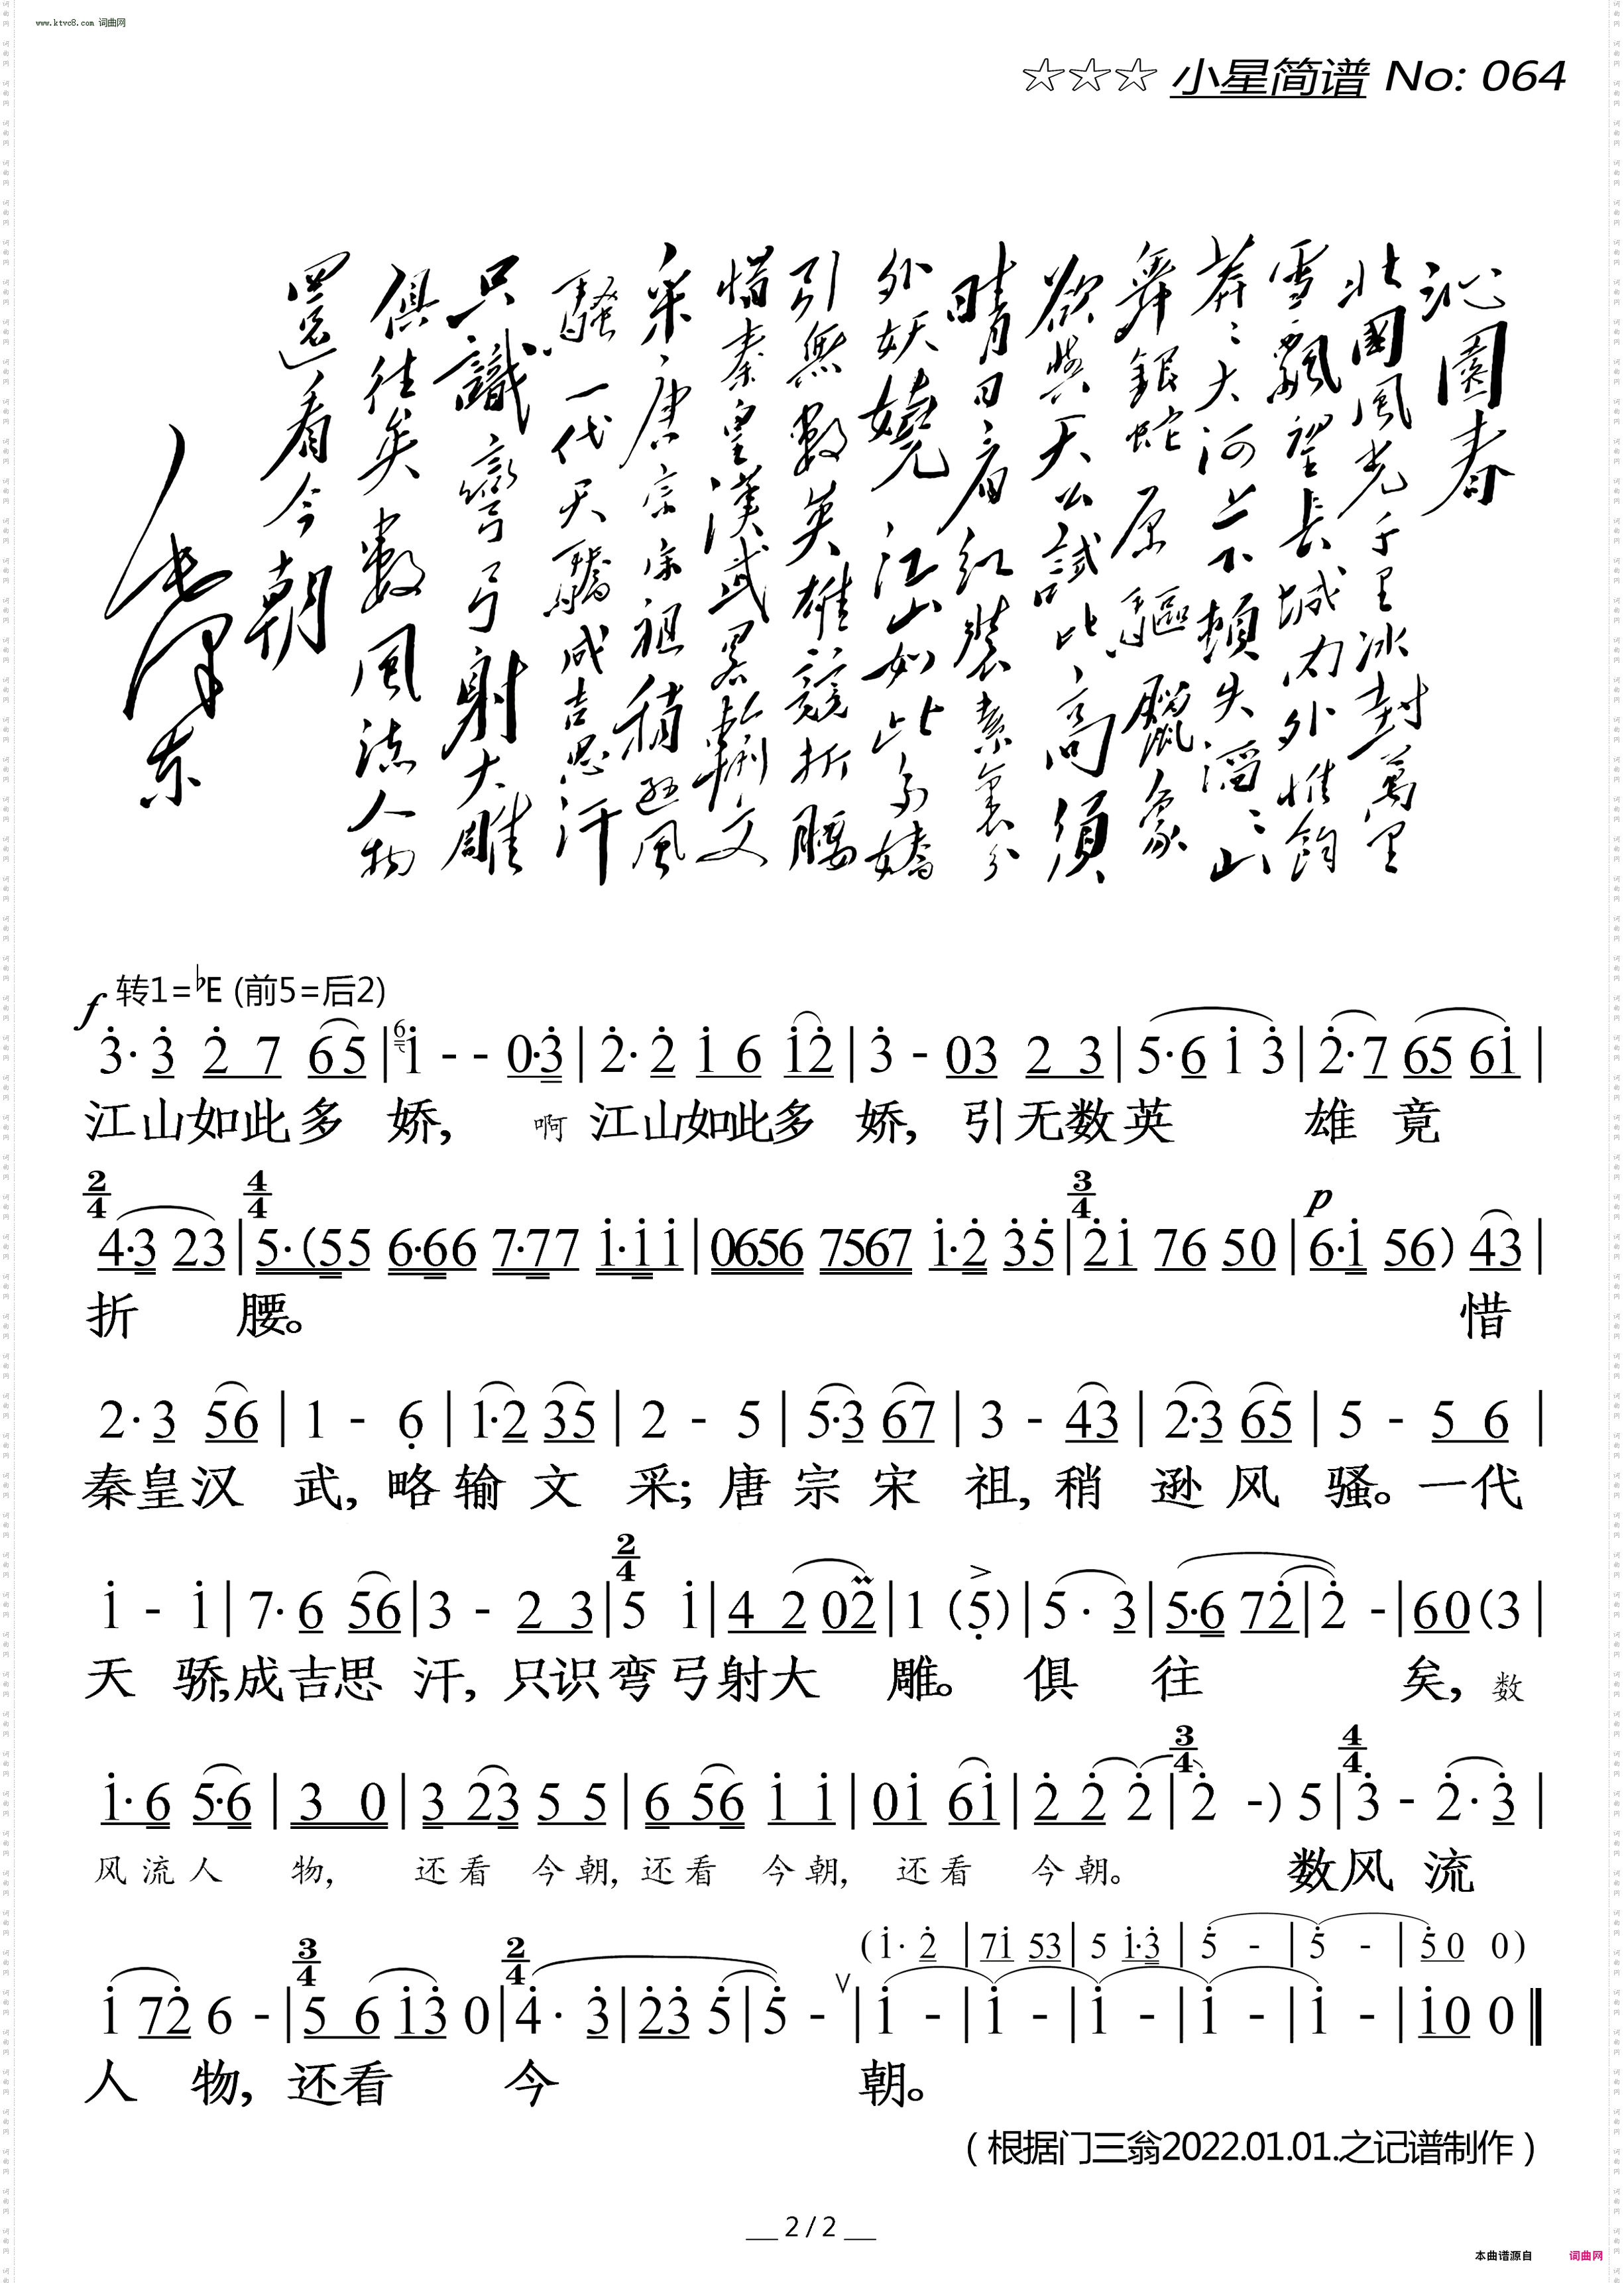 www.ktvc8.com 词曲网
☆☆☆ 小星简谱 No: 064
沁園春
北國風光千里冰封萬里
雪飄望長城內外惟餘
莽々大河上下頓失滔々山
舞銀蛇原驅臘象
欲與天公試比高須
晴日看紅裝素裹分
外妖嬈江山如此多嬌
引無數英雄競折腰
惜秦皇漢武略輸文
采唐宗宋祖稍遜風
騷一代天驕成吉思汗
只識彎弓射大雕
俱往矣數風流人物
還看今朝
毛泽东
转1=♭E (前5=后2)
f
3̇· 3̇ 2̇ 7 65 | 6 1̇ - - 0·3̇ | 2̇· 2̇ 1̇ 6 1̇2̇ | 3̇ - 03 2 3 | 5·6 1̇ 3̇ | 2̇·7 65 61̇ |
江山如此多 娇, 啊 江山如此多 娇, 引无数英 雄 竟
2/4 4·3 23 | 4/4 5·(55 6·66 7·77 1̇·1̇1̇ | 0656 7567 1̇·2̇ 3̇5̇ | 3/4 2̇1̇ 76 50 | p 6·1̇ 56) 43 |
折 腰。 惜
2·3 56 | 1 - 6̣ | 1·2 35 | 2 - 5 | 5·3 67 | 3 - 43 | 2·3 65 | 5 - 5 6 |
秦皇汉 武, 略输 文 采; 唐 宗 宋 祖, 稍 逊 风 骚。一代
1̇ - 1̇ | 7·6 56 | 3 - 2 3 | 2/4 5 1̇ | 4 2 02̇ | 1 (5̣) | 5 · 3 | 5·6 72̇ | 2̇ - | 60 (3 |
天 骄,成吉思 汗, 只识弯弓射大 雕。 俱 往 矣, 数
1̇·6 5·6 | 3 0 | 3 23 5 5 | 6 56 1̇ 1̇ | 01̇ 61̇ | 2̇ 2̇ 2̇ | 3/4 2̇ -) 5 | 4/4 3̇ - 2̇·3̇ |
风流人 物, 还看 今朝, 还看 今朝, 还看 今朝。 数风 流
(1̇· 2̇ | 71̇ 53 | 5 1̇·3̇ | 5̇ - | 5̇ - | 5̇0 0)
1̇ 72̇ 6 - | 3/4 5 6 1̇3̇ 0 | 2/4 4̇· 3̇ | 2̇3̇ 5̇ | 5̇ - ∨ | 1̇ - | 1̇ - | 1̇ - | 1̇ - | 1̇ - | 1̇0 0 ‖
人 物, 还看 今 朝。
（根据门三翁2022.01.01.之记谱制作）
2 / 2
本曲谱源自 词曲网